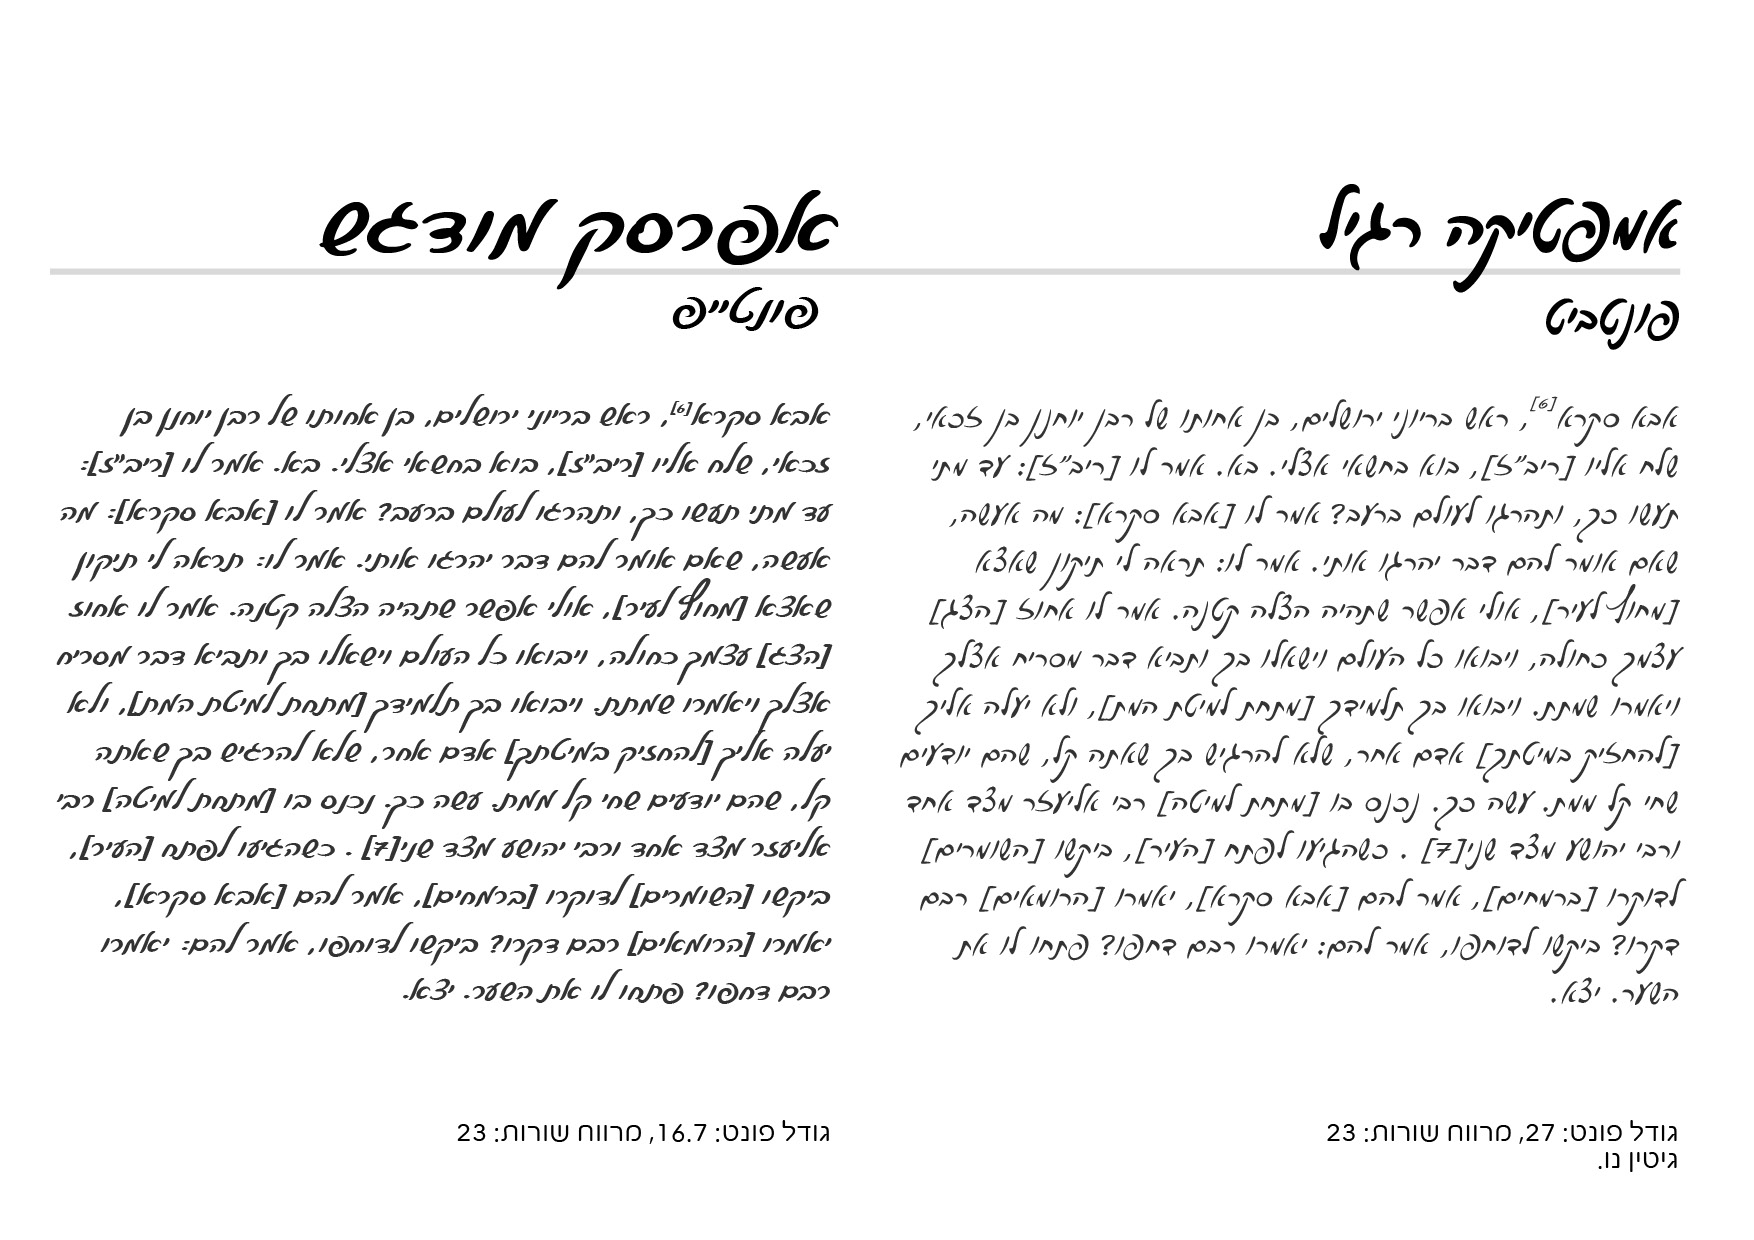 אמפטיקה רגיל
פונטביט
אבא סקרא[6], ראש בריוני ירושלים, בן אחותו של רבן יוחנן בן זכאי,
שלח אליו [ריב"ז], בוא בחשאי אצלי. בא. אמר לו [ריב"ז]: עד מתי
תעשו כך, ותהרגו לעולם ברעב? אמר לו [אבא סקרא]: מה אעשה,
שאם אומר להם דבר יהרגו אותי. אמר לו: תראה לי תיקון שאצא
[מחוץ לעיר], אולי אפשר שתהיה הצלה קטנה. אמר לו אחוז [הצג]
עצמך כחולה, ויבואו כל העולם וישאלו בך ותביא דבר מסריח אצלך
ויאמרו שמתת. ויבואו בך תלמידך [מתחת למיטת המת], ולא יעלה אליך
[להחזיק במיטתך] אדם אחר, שלא להרגיש בך שאתה קל, שהם יודעים
שחי קל ממת. עשה כך. נכנס בו [מתחת למיטה] רבי אליעזר מצד אחד
ורבי יהושע מצד שני[7] . כשהגיעו לפתח [העיר], ביקשו [השומרים]
לדוקרו [ברמחים], אמר להם [אבא סקרא], יאמרו [הרומאים] רבם
דקרו? ביקשו לדוחפו, אמר להם: יאמרו רבם דחפו? פתחו לו את
השער. יצא.
גודל פונט: 27, מרווח שורות: 23
גיטין נו.
אפרסק מודגש
פונטייפ
אבא סקרא[6], ראש בריוני ירושלים, בן אחותו של רבן יוחנן בן
זכאי, שלח אליו [ריב"ז], בוא בחשאי אצלי. בא. אמר לו [ריב"ז]:
עד מתי תעשו כך, ותהרגו לעולם ברעב? אמר לו [אבא סקרא]: מה
אעשה, שאם אומר להם דבר יהרגו אותי. אמר לו: תראה לי תיקון
שאצא [מחוץ לעיר], אולי אפשר שתהיה הצלה קטנה. אמר לו אחוז
[הצג] עצמך כחולה, ויבואו כל העולם וישאלו בך ותביא דבר מסריח
אצלך ויאמרו שמתת. ויבואו בך תלמידך [מתחת למיטת המת], ולא
יעלה אליך [להחזיק במיטתך] אדם אחר, שלא להרגיש בך שאתה
קל, שהם יודעים שחי קל ממת. עשה כך. נכנס בו [מתחת למיטה] רבי
אליעזר מצד אחד ורבי יהושע מצד שני[7] . כשהגיעו לפתח [העיר],
ביקשו [השומרים] לדוקרו [ברמחים], אמר להם [אבא סקרא],
יאמרו [הרומאים] רבם דקרו? ביקשו לדוחפו, אמר להם: יאמרו
רבם דחפו? פתחו לו את השער. יצא.
גודל פונט: 16.7, מרווח שורות: 23